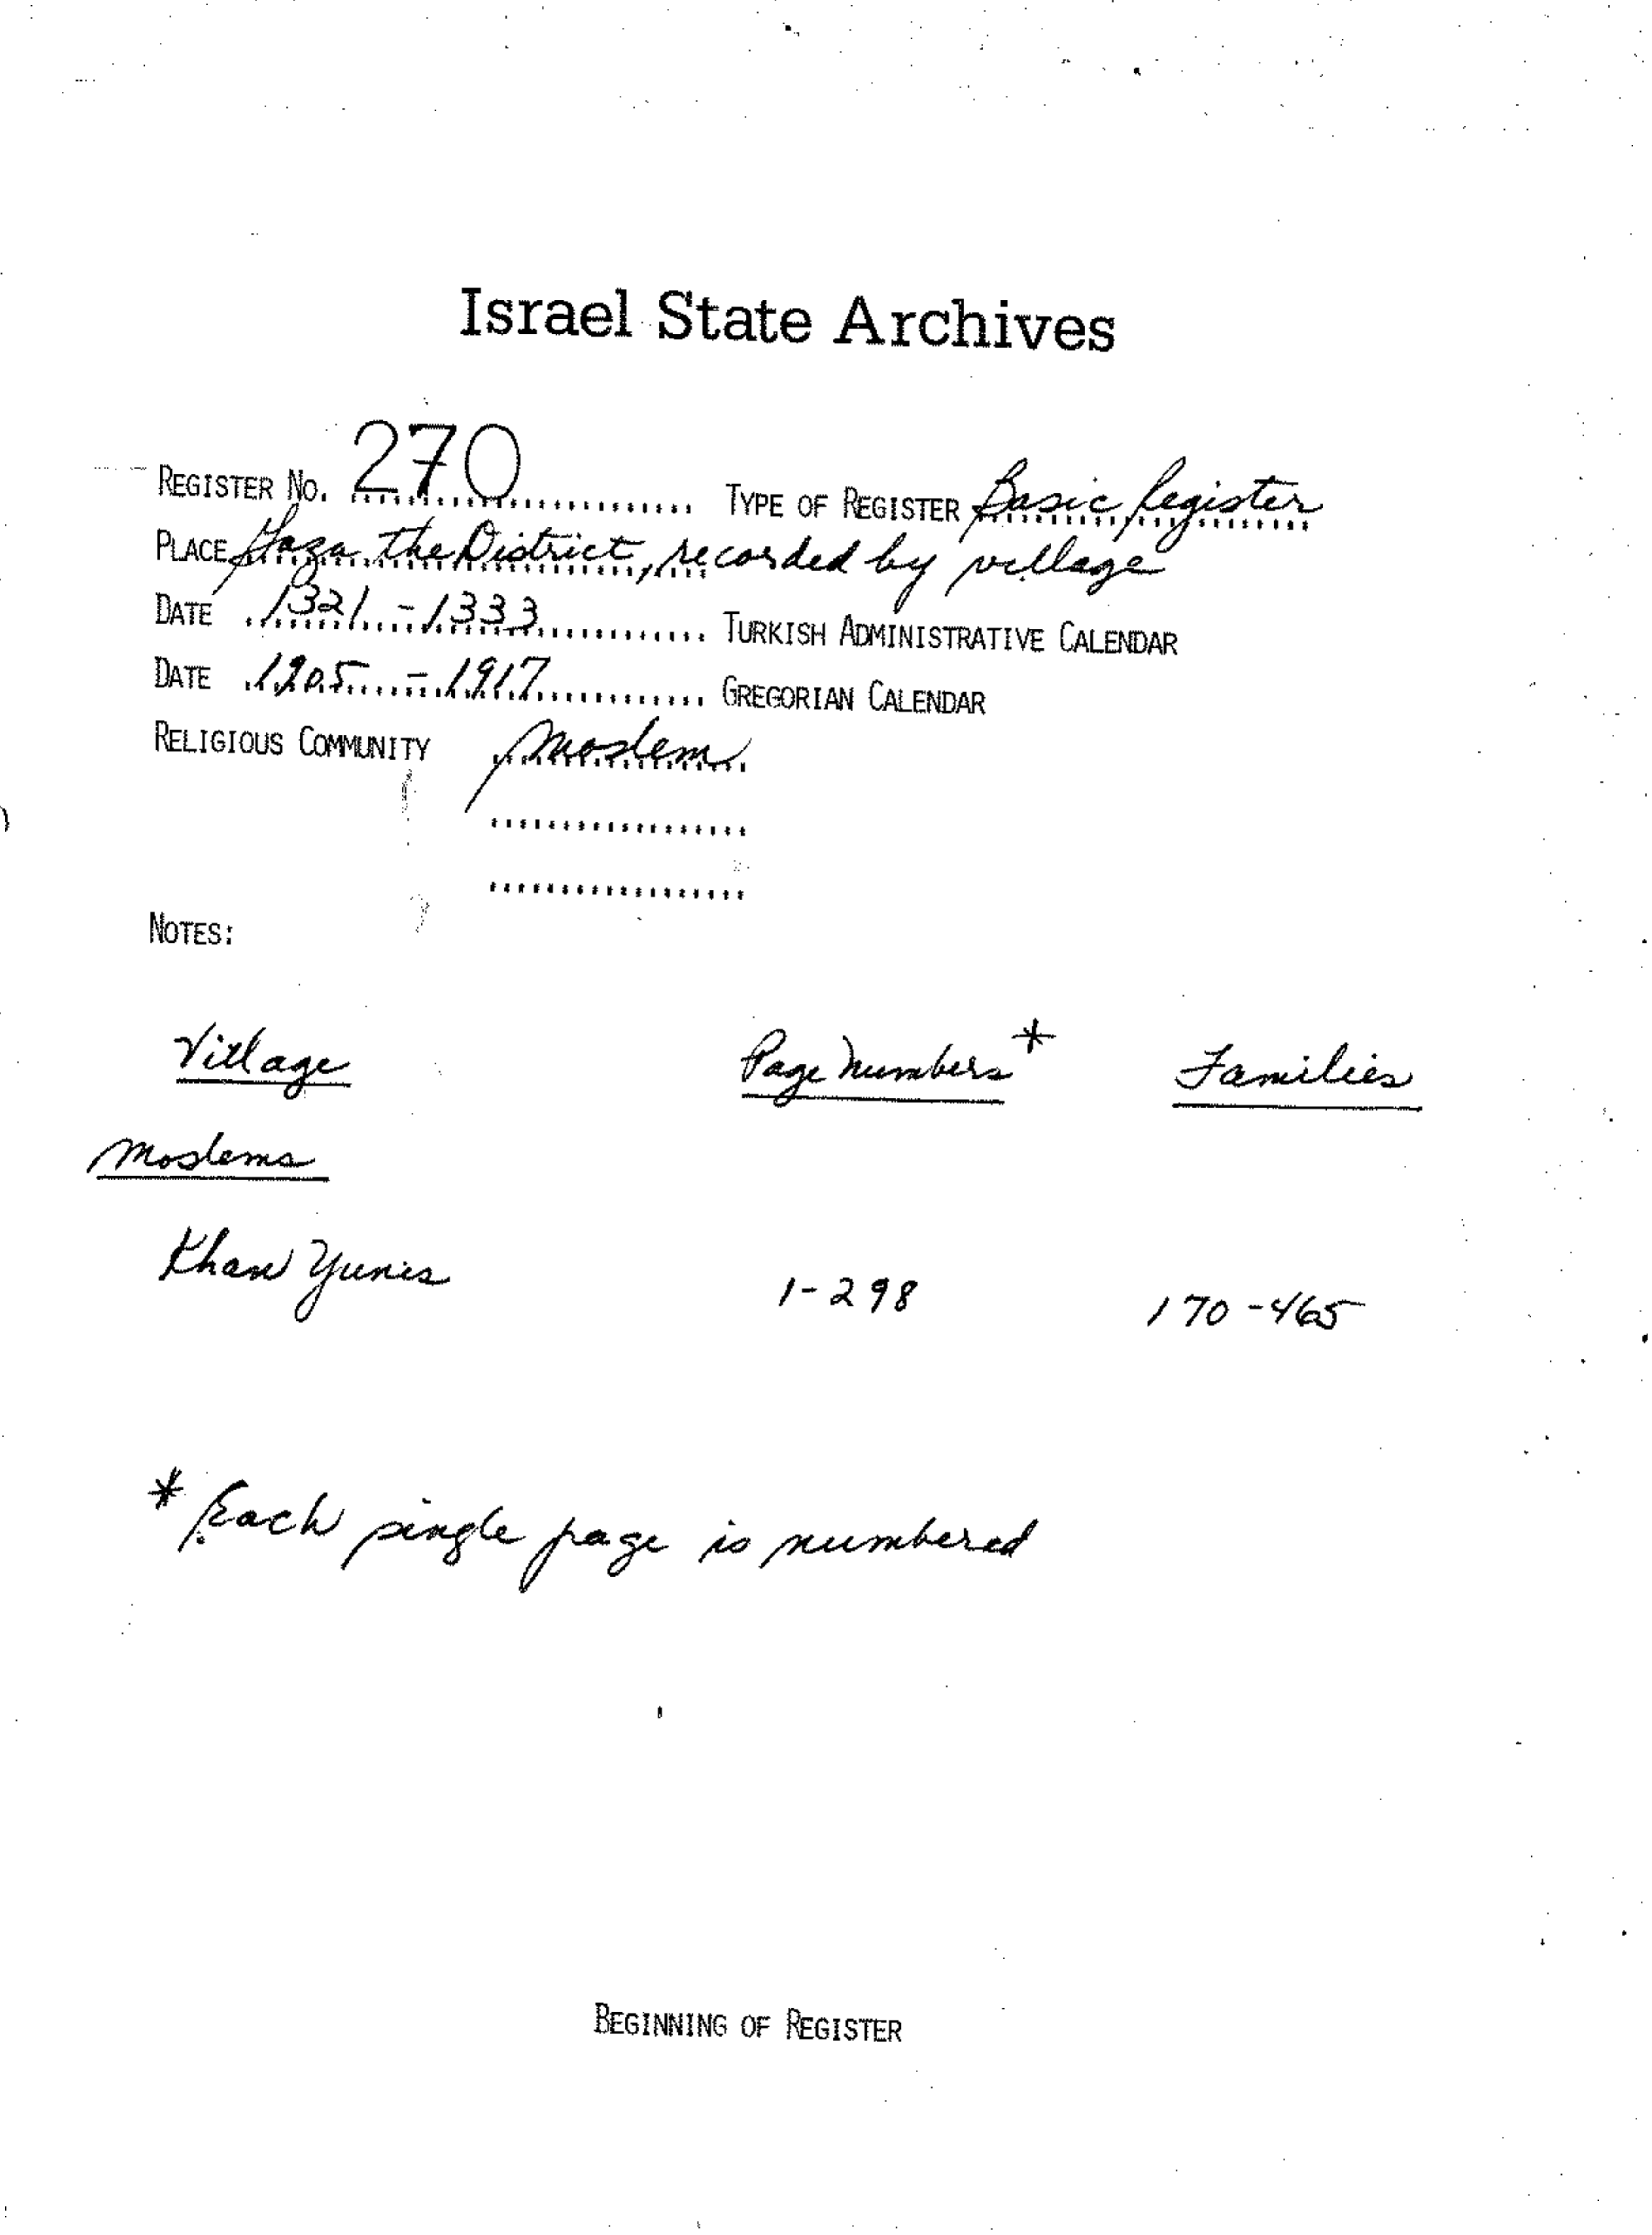 Israel State Archives
REGISTER NO. 270 TYPE OF REGISTER Basic Register
PLACE Gaza, the District, recorded by village
DATE 1321 - 1333 TURKISH ADMINISTRATIVE CALENDAR
DATE 1905 - 1917 GREGORIAN CALENDAR
RELIGIOUS COMMUNITY Moslem
NOTES:
Village Page Numbers * Families
Moslems
Khan Yunis 1-298 170-465
* Each single page is numbered
BEGINNING OF REGISTER